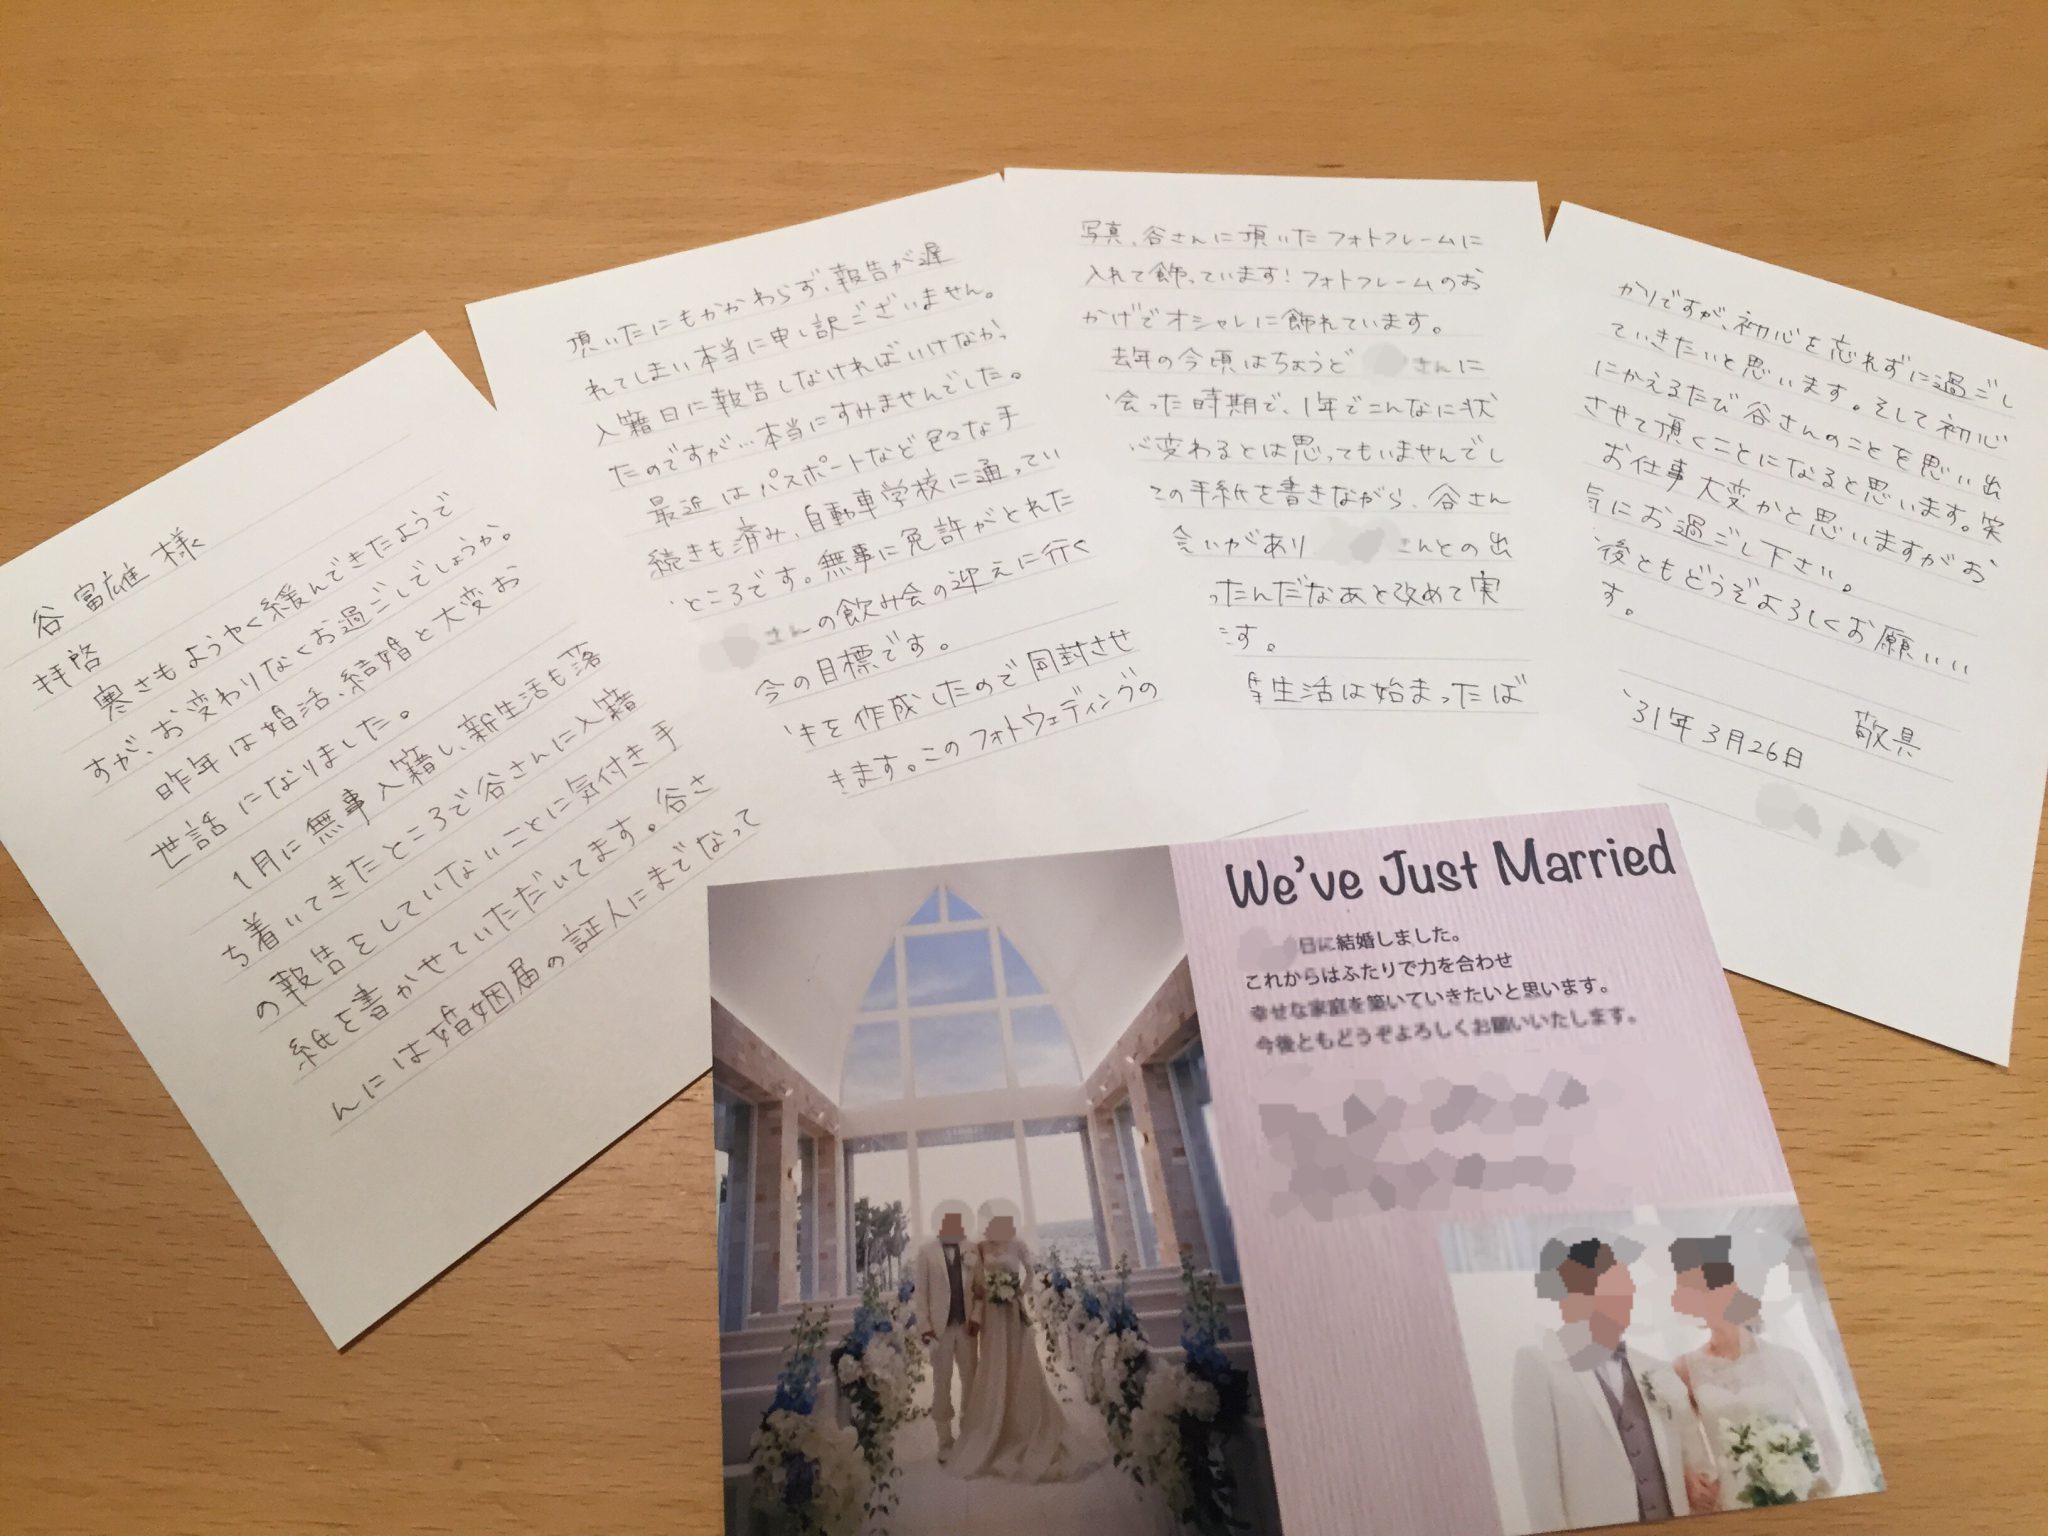 谷 富雄 様
拝啓
寒さもようやく緩んできたようで
すが、お変わりなくお過ごしでしょうか。
昨年は婚活、結婚と大変お
世話になりました。
1月に無事入籍し、新生活も落
ち着いてきたところで谷さんに入籍
の報告をしていないことに気付き手
紙を書かせていただいてます。谷さ
んには婚姻届の証人にまでなって
頂いたにもかかわらず、報告が遅
れてしまい本当に申し訳ございません。
入籍日に報告しなければいけなか
たのですが…本当にすみませんでした。
最近はパスポートなど色々な手
続きも済み、自動車学校に通ってい
ところです。無事に免許がとれた
さんの飲み会の迎えに行く
今の目標です。
キを作成したので同封させ
きます。このフォトウェディングの
写真、谷さんに頂いたフォトフレームに
入れて飾っています！フォトフレームのお
かげでオシャレに飾れています。
去年の今頃はちょうど さんに
会った時期で、1年でこんなに状
変わるとは思ってもいませんでし
この手紙を書きながら、谷さん
会いがあり さんとの出
ったんだなあと改めて実
す。
生活は始まったば
かりですが、初心を忘れずに過ごし
ていきたいと思います。そして初心
にかえるたび谷さんのことを思い出
させて頂くことになると思います。笑
お仕事大変かと思いますがお
気にお過ごし下さい。
後ともどうぞよろしくお願いい
す。
敬具
'31年3月26日
We've Just Married
日に結婚しました。
これからはふたりで力を合わせ
幸せな家庭を築いていきたいと思います。
今後ともどうぞよろしくお願いいたします。